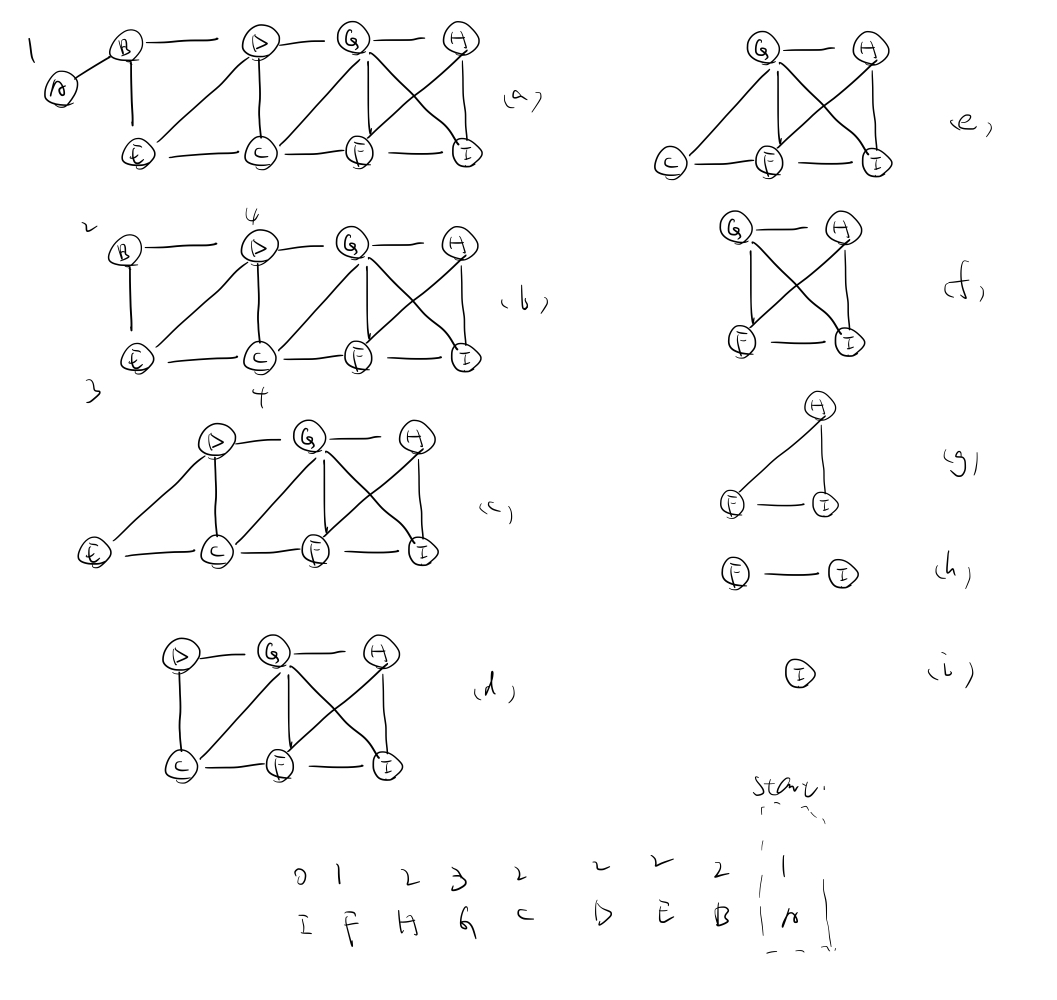 1 B D G H
A (a)
E C F I
2 4
B D G H
(b)
E C F I
3 4
D G H
(c)
E C F I
D G H
(d)
C F I
G H
(e)
C F I
G H
(f)
F I
H
(g)
F I
F I (h)
I (i)
start.
0 1 2 3 2 2 2 2 1
I F H G C D E B A